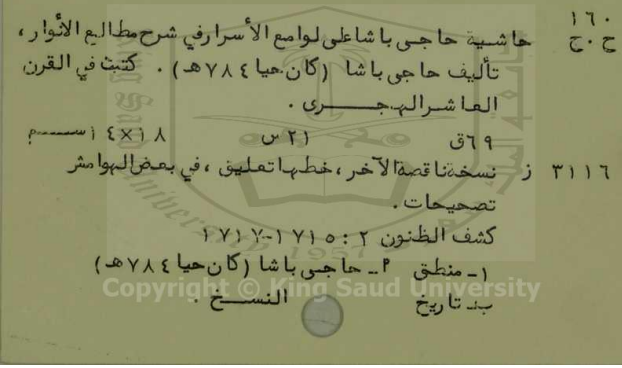 ١٦٠
ح ٠ ج حاشية حاجى باشا على لوامع الأسرار في شرح مطالع الأنوار ،
تأليف حاجى باشا (كان حيا ٧٨٤هـ) . كتبت في القرن
العاشر الهجرى .
٦٩ق ٢١ س ١٨×١٤ سم
٣١١٦ ز نسخة ناقصة الآخر ، خطها تعليق ، في بعض الهوامش
تصحيحات .
كشف الظنون ٢ : ١٧١٥-١٧١٧
١- منطق أ- حاجى باشا (كان حيا ٧٨٤هـ)
Copyright © King Saud University
ب- تاريخ النسخ .
1957